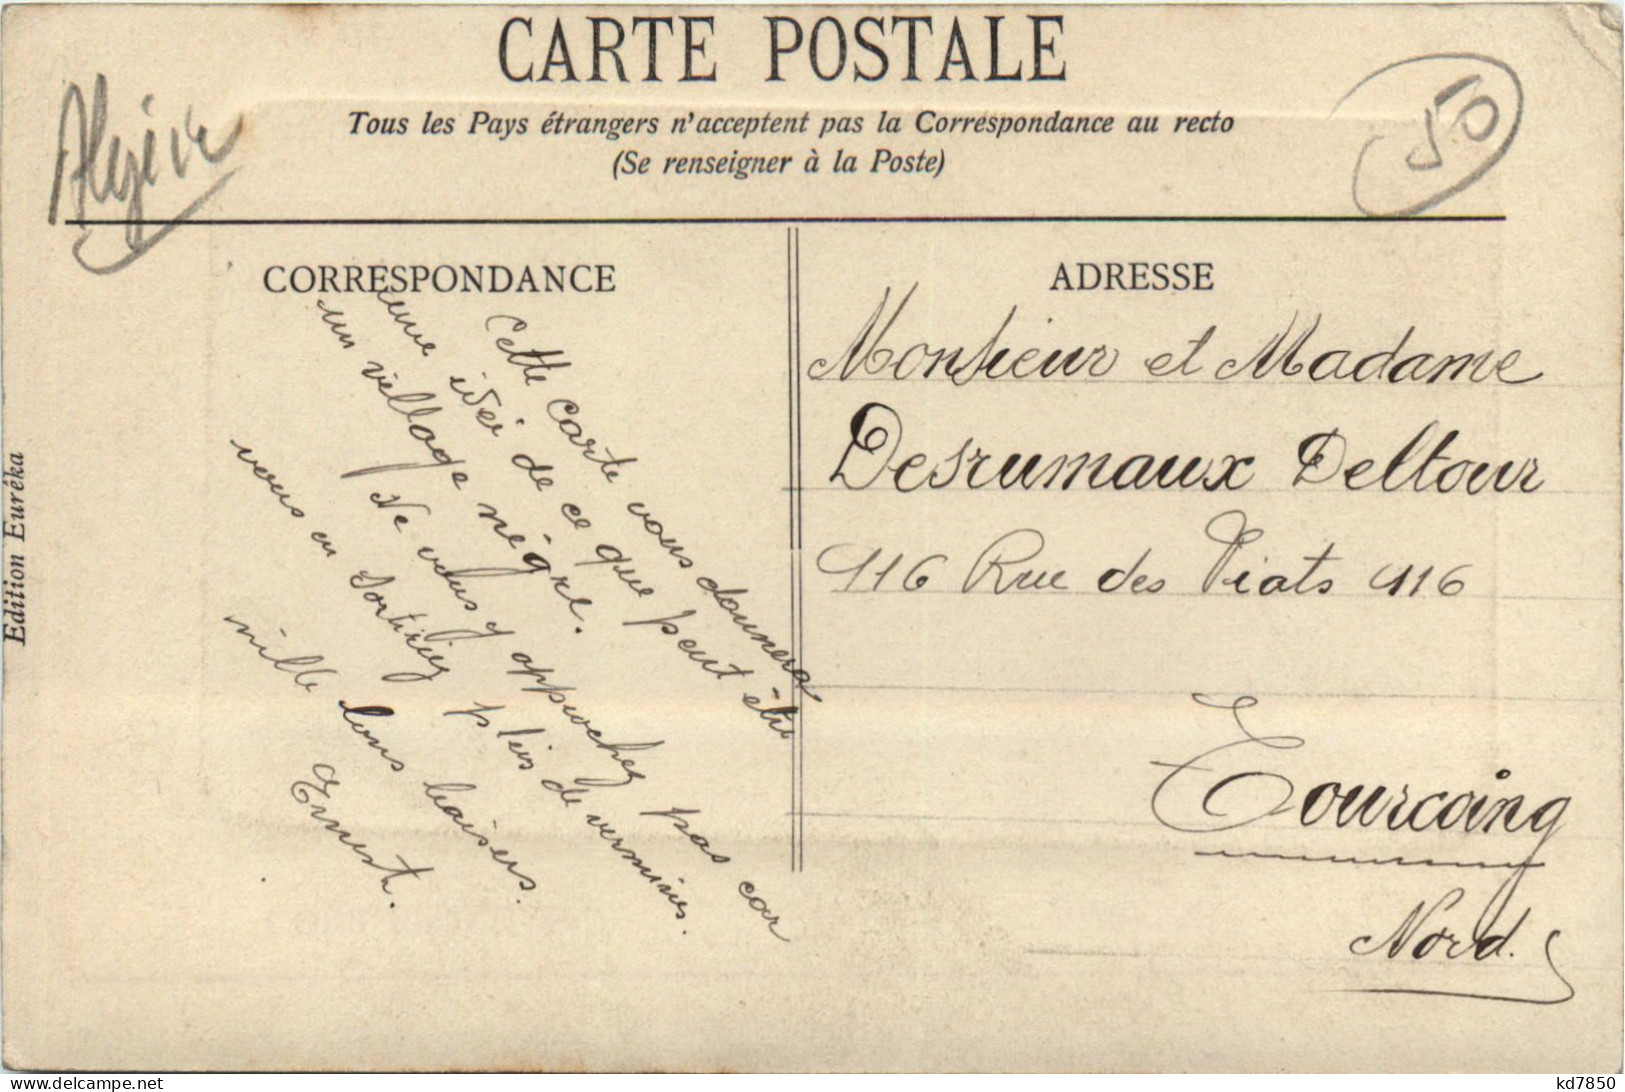 CARTE POSTALE
Tous les Pays étrangers n'acceptent pas la Correspondance au recto
(Se renseigner à la Poste)
Algérie
50
CORRESPONDANCE
Cette carte vous donnera
une idée de ce que peut être
un village nègre.
Ne vous y approchez pas car
vous en sortiriez pleins de vermines.
mille bons baisers.
Ernest.
ADRESSE
Monsieur et Madame
Desrumaux Deltour
116 Rue des Piats 116
Tourcoing
Nord.
Edition Euréka
kd7850